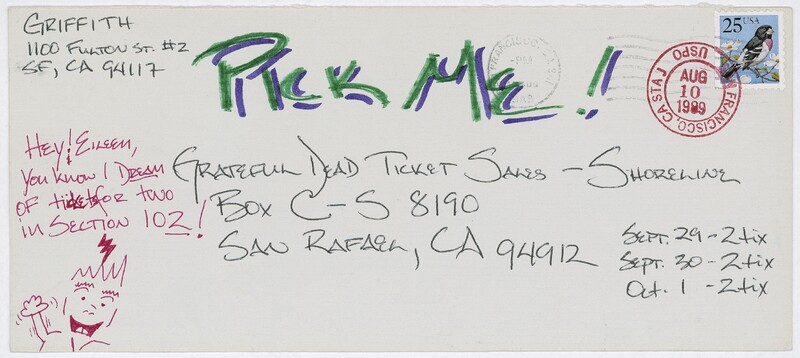 GRIFFITH
1100 FULTON ST. #2
SF, CA 94117
PICK ME!!
25 USA
SAN FRANCISCO, CA STA J USPO
AUG
10
1989
HEY! EILEEN,
YOU KNOW I DREAM
OF tix FOR TWO
IN SECTION 102!
GRATEFUL DEAD TICKET SALES – SHORELINE
BOX C-S 8190
SAN RAFAEL, CA 94912
SEPT. 29 – 2 tix
SEPT. 30 – 2 tix
Oct. 1 – 2 tix